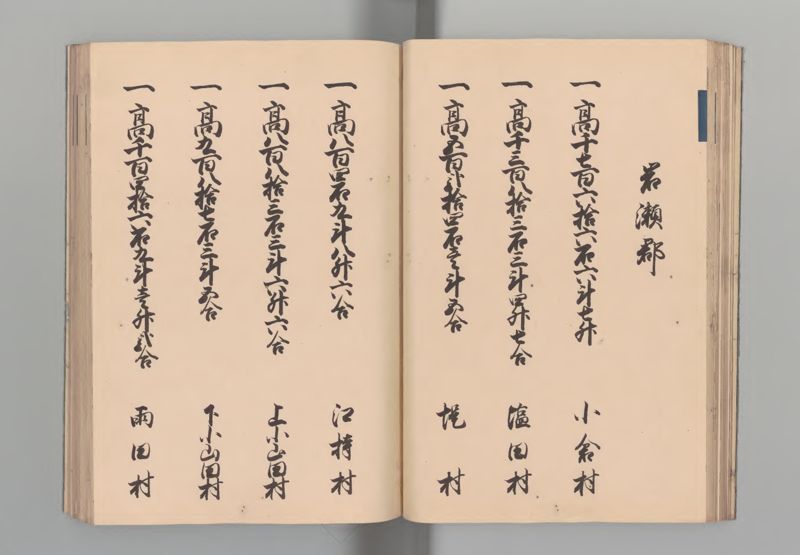 岩瀬郡
一高千七百六拾六石六斗七升 小倉村
一高千三百八拾三石三斗四升七合 塩田村
一高五百 拾四石壱斗五合 堤村
一高八百四石九斗八升六合 江持村
一高八百八拾三石三斗六升六合 上小山田村
一高九百八拾七石三斗五合 下小山田村
一高千百四拾六石九斗壱升弐合 雨田村